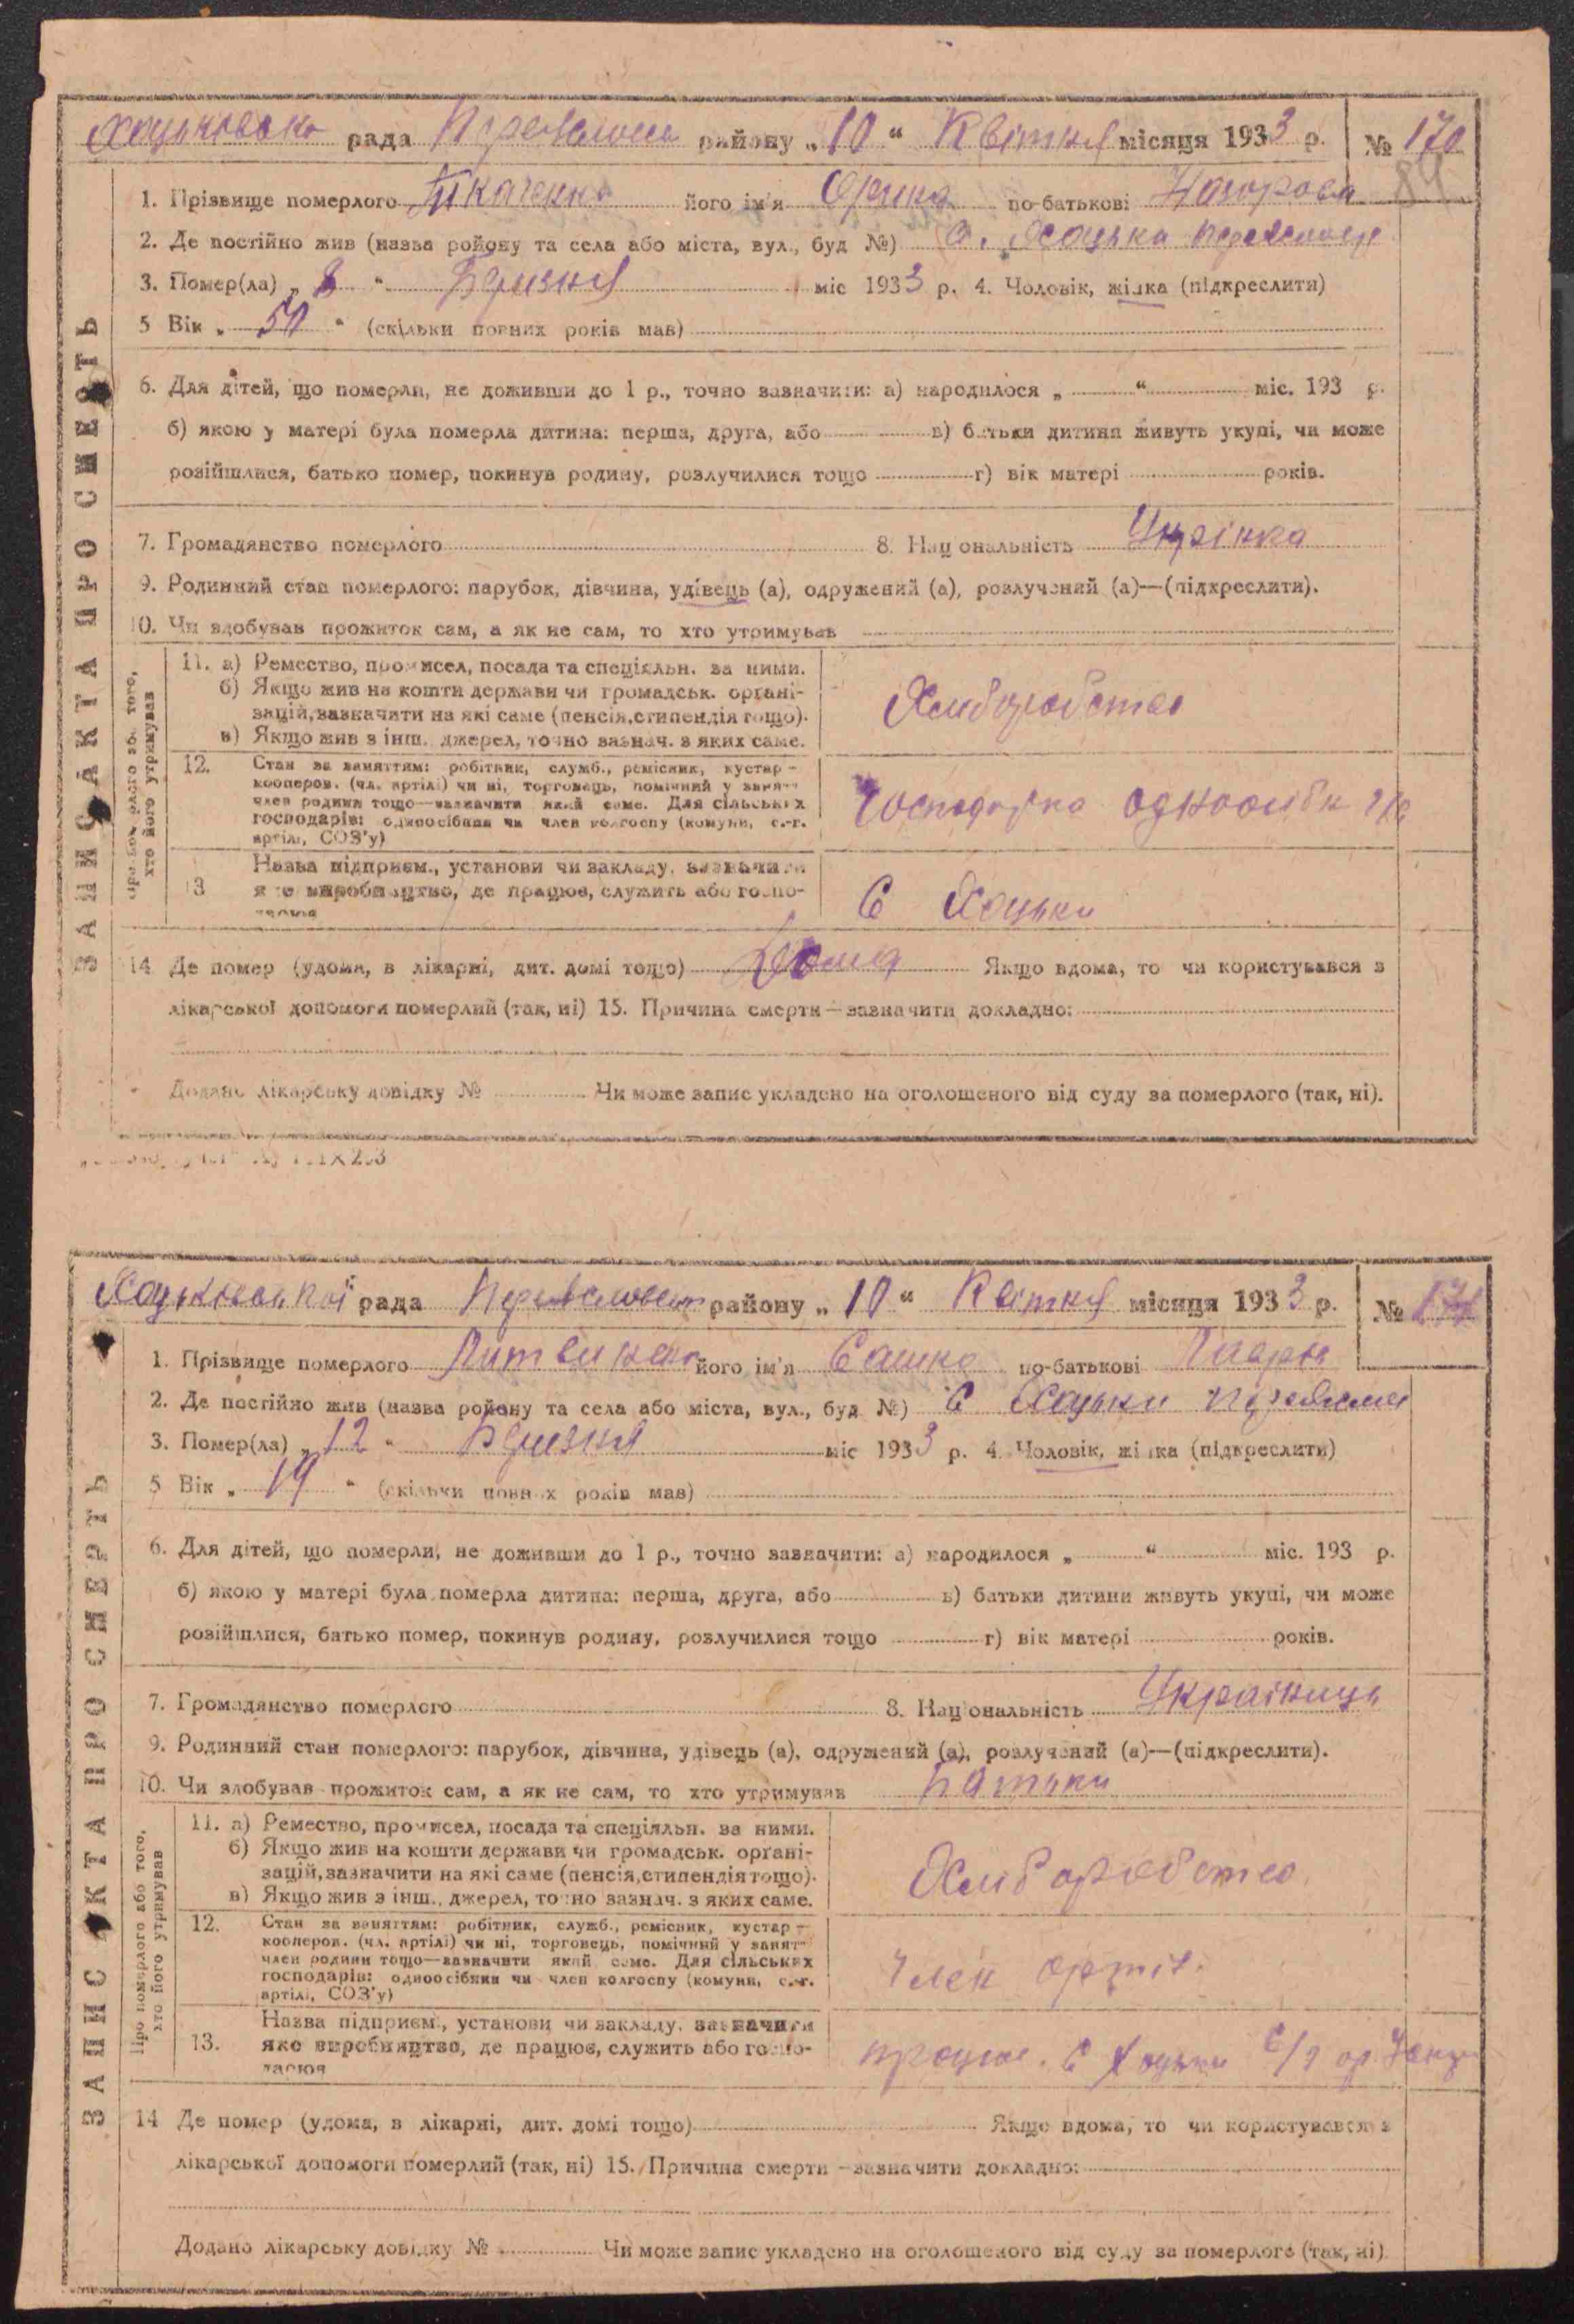 рада районУ „ 10 “ Квітня місяця 1933 р. № 170
84
1. Прізвище померлого Ткаченко його ім'я Орина по-батькові
2. Де постійно жив (назва ройону та села або міста, вул., буд №) с. Хоцьки
3. Помер(ла) „ 8 “ Березня міс 1933 р. 4. Чоловік, жінка (підкреслити)
5 Вік „ 50 “ (скільки повних років мав)
6. Для дітей, що померли, не доживши до 1 р., точно зазначити: а) народилося „ “ міс. 193 р.
б) якою у матері була померла дитина: перша, друга, або в) батьки дитини живуть укупі, чи може
розійшлися, батько помер, покинув родину, розлучилися тощо г) вік матері років.
7. Громадянство померлого 8. Національність
9. Родинний стан померлого: парубок, дівчина, удівець (а), одружений (а), розлучений (а)—(підкреслити).
10. Чи здобував прожиток сам, а як не сам, то хто утримував
11. а) Ремество, промисел, посада та спеціяльн. за ними.
б) Якщо жив на кошти держави чи громадськ. органі-
зацій, зазначити на які саме (пенсія, стипендія тощо).
в) Якщо жив з інш. джерел, точно зазнач. з яких саме.
Хліборобство
12. Стан за заняттям: робітник, служб., ремісник, кустар-
кооперов. (чл. артілі) чи ні, торговець, помічний у занят-
член родини тощо—зазначити який саме. Для сільських
господарів: одноосібник чи член колгоспу (комуни, с.-г.
артілі, СОЗ'у)
Господарка
13 Назва підприєм., установи чи закладу, зазначити
яке виробництво, де працює, служить або госпо-
дарює
С Хоцьки
14 Де помер (удома, в лікарні, дит. домі тощо) Дома Якщо вдома, то чи користувався з
лікарської допомоги померлий (так, ні) 15. Причина смерти—зазначити докладно:
Додано лікарську довідку № Чи може запис укладено на оголошеного від суду за померлого (так, ні).
ЗАПИС АКТА ПРО СМЕРТЬ
Хоцьківської рада району „ 10 “ Квітня місяця 1933 р. № 171
1. Прізвище померлого Литвиненко його ім'я Сашко по-батькові
2. Де постійно жив (назва ройону та села або міста, вул., буд №) С Хоцьки
3. Помер(ла) „ 12 “ Березня міс 1933 р. 4. Чоловік, жінка (підкреслити)
5 Вік „ 19 “ (скільки повних років мав)
6. Для дітей, що померли, не доживши до 1 р., точно зазначити: а) народилося „ “ міс. 193 р.
б) якою у матері була померла дитина: перша, друга, або в) батьки дитини живуть укупі, чи може
розійшлися, батько помер, покинув родину, розлучилися тощо г) вік матері років.
7. Громадянство померлого 8. Національність Українець
9. Родинний стан померлого: парубок, дівчина, удівець (а), одружений (а), розлучений (а)—(підкреслити).
10. Чи здобував прожиток сам, а як не сам, то хто утримував Батьки
11. а) Ремество, промисел, посада та спеціяльн. за ними.
б) Якщо жив на кошти держави чи громадськ. органі-
зацій, зазначити на які саме (пенсія, стипендія тощо).
в) Якщо жив з інш., джерел, точно зазнач. з яких саме.
Хліборобство
12. Стан за заняттям: робітник, служб., ремісник, кустар-
кооперов. (чл. артілі) чи ні, торговець, помічний у занят-
член родини тощо—зазначити який саме. Для сільських
господарів: одноосібник чи член колгоспу (комуни, с.-г.
артілі, СОЗ'у)
член артіл.
13. Назва підприєм., установи чи закладу, зазначити
яке виробництво, де працює, служить або госпо-
дарює
працює. С Хоцьки
14 Де помер (удома, в лікарні, дит. домі тощо) Якщо вдома, то чи користувався з
лікарської допомоги померлий (так, ні) 15. Причина смерти—зазначити докладно:
Додано лікарську довідку № Чи може запис укладено на оголошеного від суду за померлого (так, ні)
ЗАПИС АКТА ПРО СМЕРТЬ
Про померлого або того,
хто його утримував